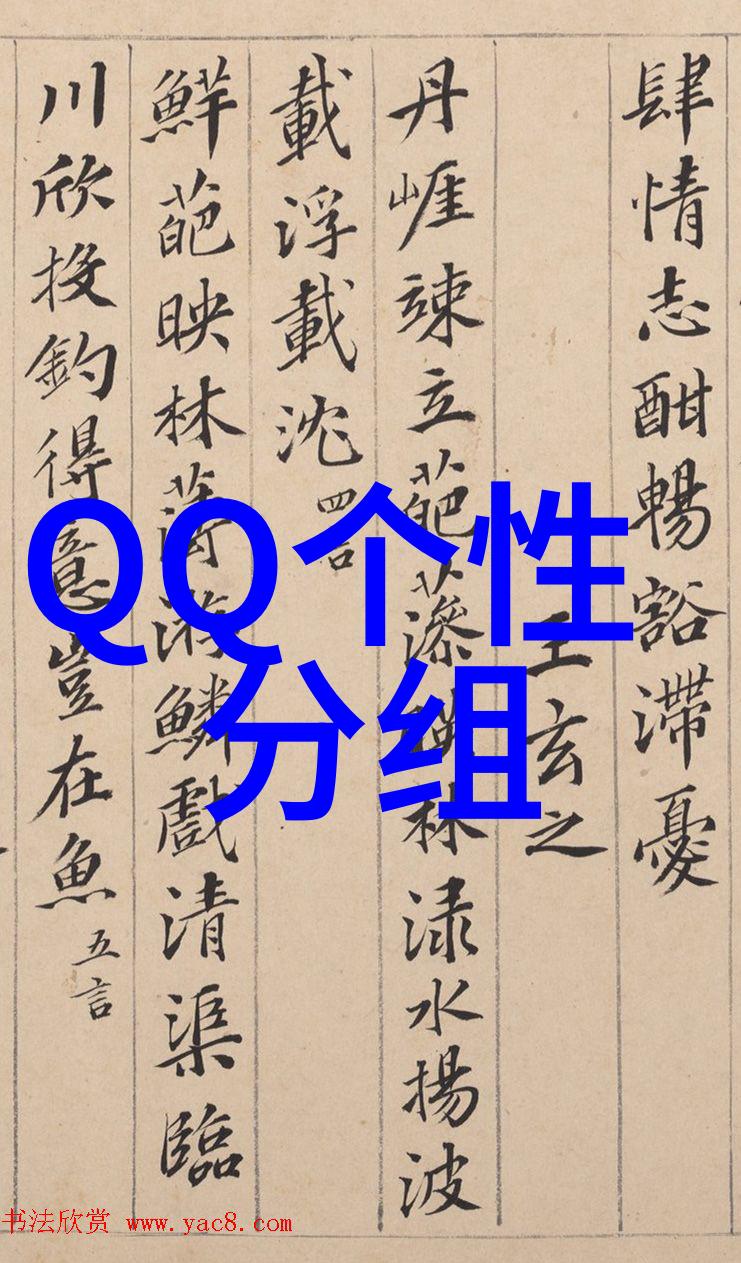 肆情志酣暢豁滯憂
王玄之
丹崕竦立葩藻林渌水揚波
載浮載沈 四言
鮮葩映林薄游鱗戲清渠臨
川欣投釣得意豈在魚 五言
QQ个性
分组
书法欣赏 www.yac8.com